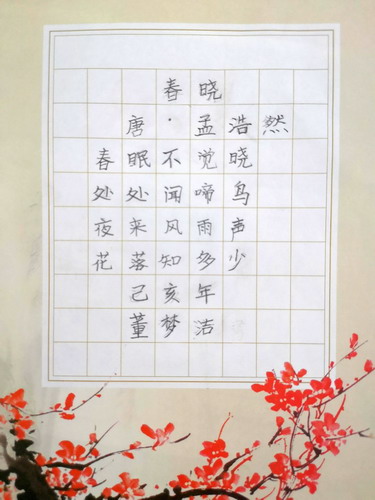 春晓
唐·孟浩然
春眠不觉晓
处处闻啼鸟
夜来风雨声
花落知多少
己亥年
董梦洁